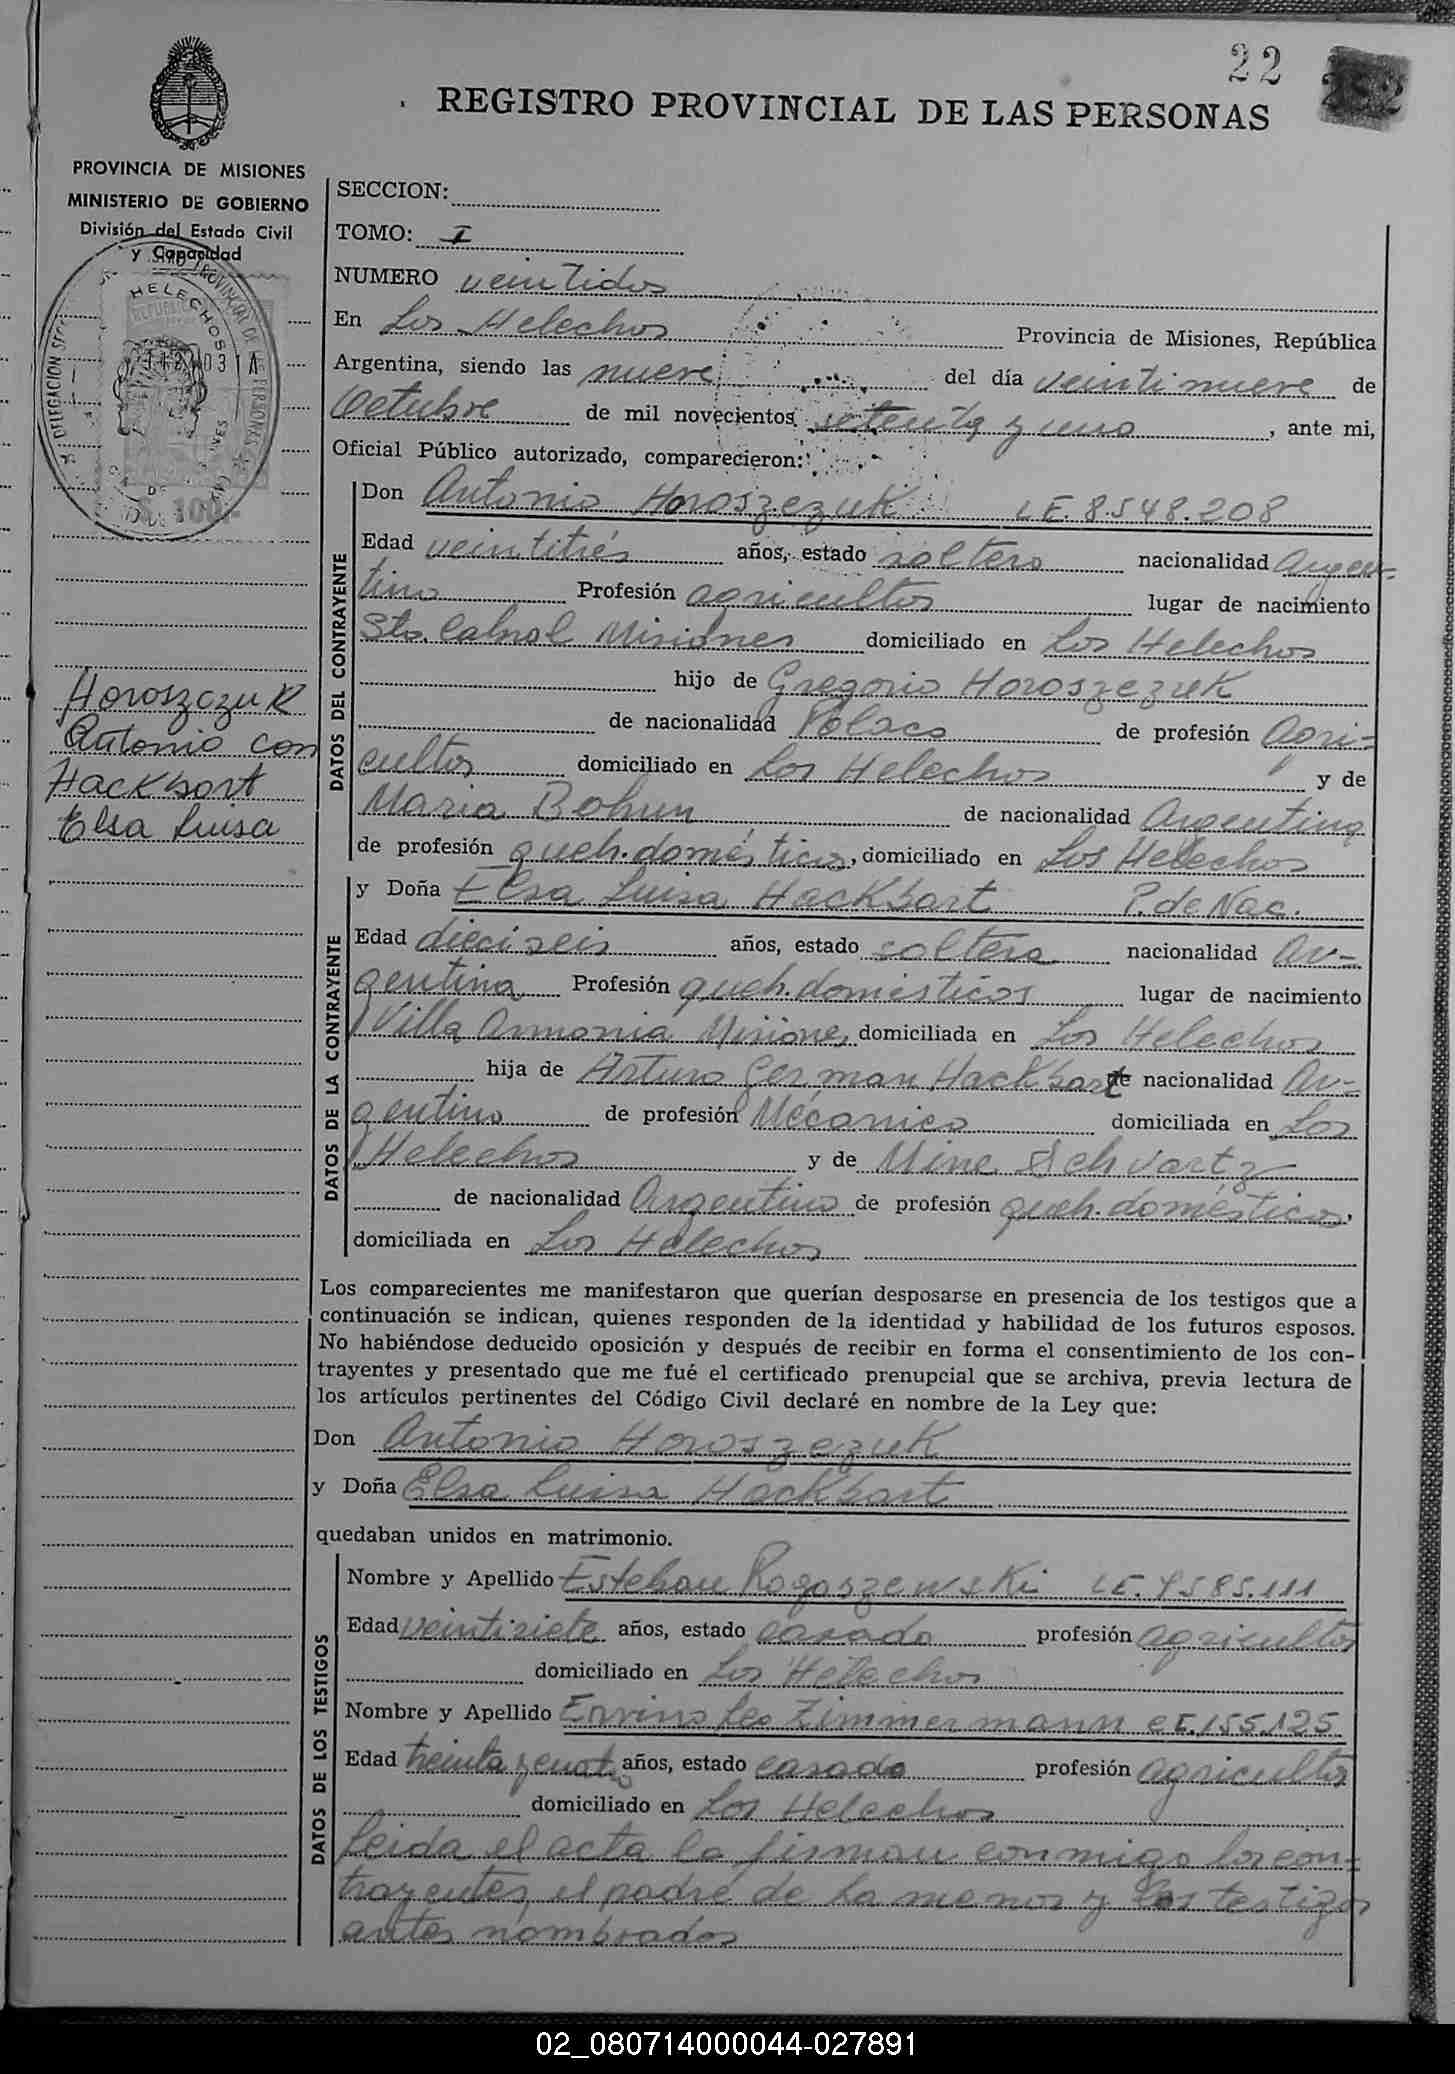 22
REGISTRO PROVINCIAL DE LAS PERSONAS
PROVINCIA DE MISIONES
MINISTERIO DE GOBIERNO
División del Estado Civil
y Capacidad
HELECHOS
100
SECCION:
TOMO: I
NUMERO veintidos
En Los Helechos Provincia de Misiones, República
Argentina, siendo las nueve del día veintinueve de
Octubre de mil novecientos setenta y uno, ante mi,
Oficial Público autorizado, comparecieron:
DATOS DEL CONTRAYENTE
Don Antonio Horoszczuk LE. 8.548.208
Edad veintitrés años, estado soltero nacionalidad Argen-
tino Profesión agricultor lugar de nacimiento
Sto. Cabral Misiones domiciliado en Los Helechos
hijo de Gregorio Horoszczuk
de nacionalidad Polaco de profesión Agri-
cultor domiciliado en Los Helechos y de
Maria Bohun de nacionalidad Argentina
de profesión queh. domésticos, domiciliado en Los Helechos
Horoszczuk
Antonio con
Hackbart
Elsa Luisa
DATOS DE LA CONTRAYENTE
y Doña Elsa Luisa Hackbart P. de Nac.
Edad dieciseis años, estado soltera nacionalidad Ar-
gentina Profesión queh. domésticos lugar de nacimiento
Villa Armonia Misiones domiciliada en Los Helechos
hija de Arturo German Hackbart de nacionalidad Ar-
gentino de profesión Mecánico domiciliada en Los
Helechos y de Mine Schvartz
de nacionalidad Argentina de profesión queh. domésticos,
domiciliada en Los Helechos
Los comparecientes me manifestaron que querían desposarse en presencia de los testigos que a
continuación se indican, quienes responden de la identidad y habilidad de los futuros esposos.
No habiéndose deducido oposición y después de recibir en forma el consentimiento de los con-
trayentes y presentado que me fué el certificado prenupcial que se archiva, previa lectura de
los artículos pertinentes del Código Civil declaré en nombre de la Ley que:
Don Antonio Horoszczuk
y Doña Elsa Luisa Hackbart
quedaban unidos en matrimonio.
DATOS DE LOS TESTIGOS
Nombre y Apellido Esteban Rogaszewski LE. 7585.111
Edad veintisiete años, estado casado profesión agricultor
domiciliado en Los Helechos
Nombre y Apellido Ervino Leo Zimmermann C.I. 155.125
Edad treinta y cuatro años, estado casado profesión agricultor
domiciliado en Los Helechos
Leida el acta la firman conmigo los con-
trayentes, el padre de la menor y los testigos
antes nombrados
02_080714000044-027891